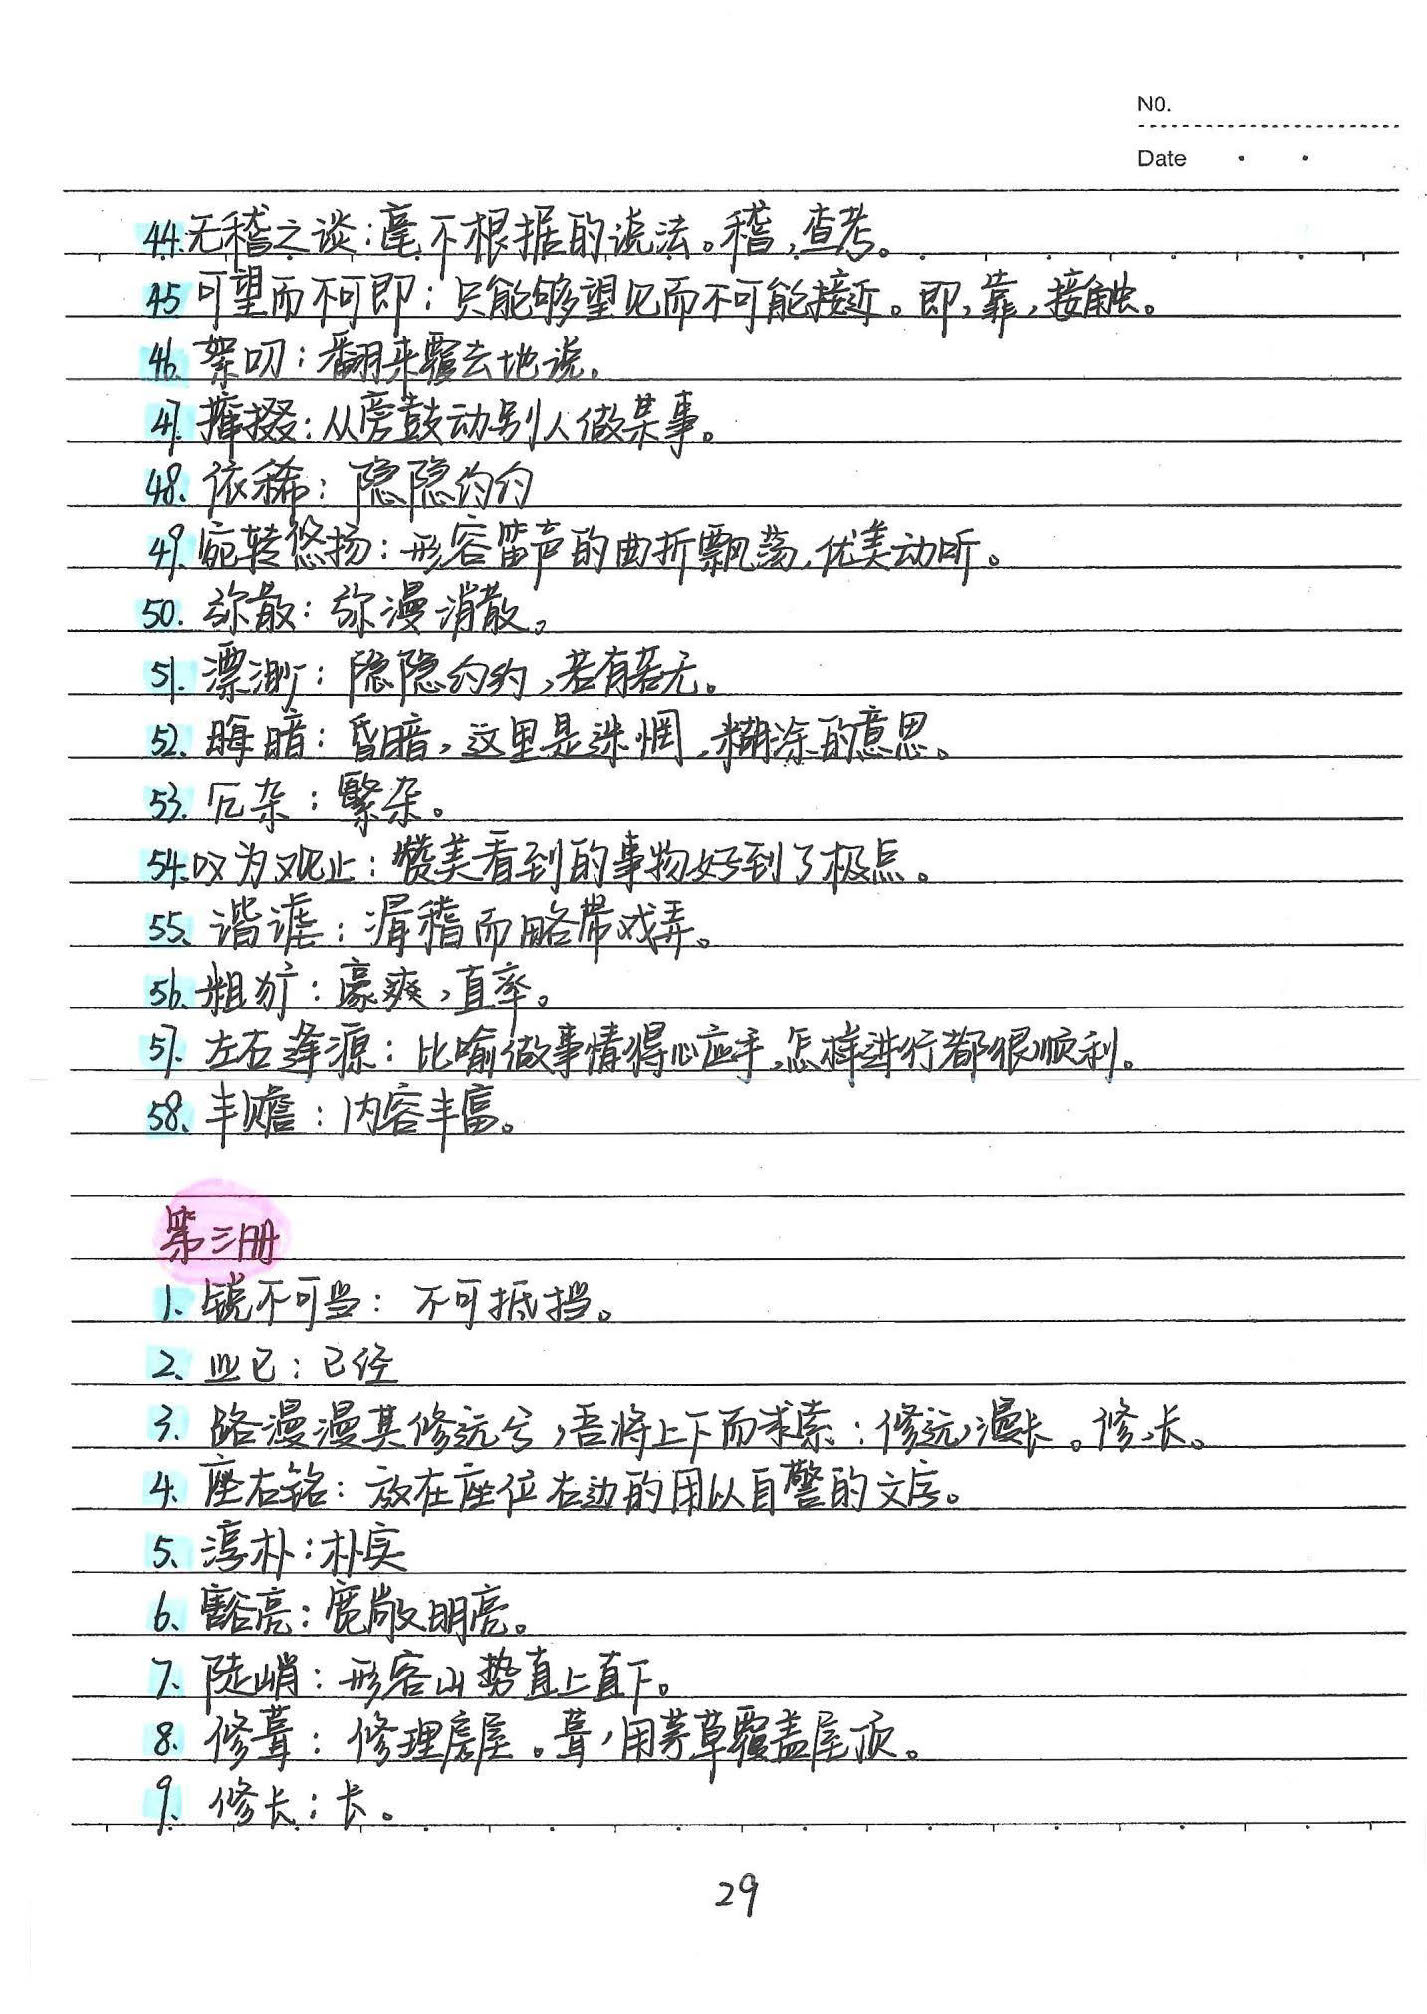 NO.
Date
44.无稽之谈:毫不根据的说法。稽,查考。
45 可望而不可即:只能够望见而不可能接近。即,靠,接触。
46. 絮叨:翻来覆去地说。
47. 撺掇:从旁鼓动别人做某事。
48. 依稀:隐隐约约
49. 宛转悠扬:形容笛声的曲折飘荡,优美动听。
50. 弥散:弥漫消散。
51. 漂渺:隐隐约约,若有若无。
52. 晦暗:昏暗,这里是迷惘,糊涂的意思。
53. 冗杂:繁杂。
54.叹为观止:赞美看到的事物好到了极点。
55. 谐谑:滑稽而略带戏弄。
56. 粗犷:豪爽,直率。
57. 左右逢源:比喻做事情得心应手,怎样进行都很顺利。
58. 丰赡:内容丰富。
第三册
1. 锐不可当:不可抵挡。
2. 业已:已经
3. 路漫漫其修远兮,吾将上下而求索:修远,漫长。修,长。
4. 座右铭:放在座位右边的用以自警的文字。
5. 淳朴:朴实
6. 豁亮:宽敞明亮。
7. 陡峭:形容山势直上直下。
8. 修葺:修理房屋。葺,用茅草覆盖屋顶。
9. 修长:长。
29